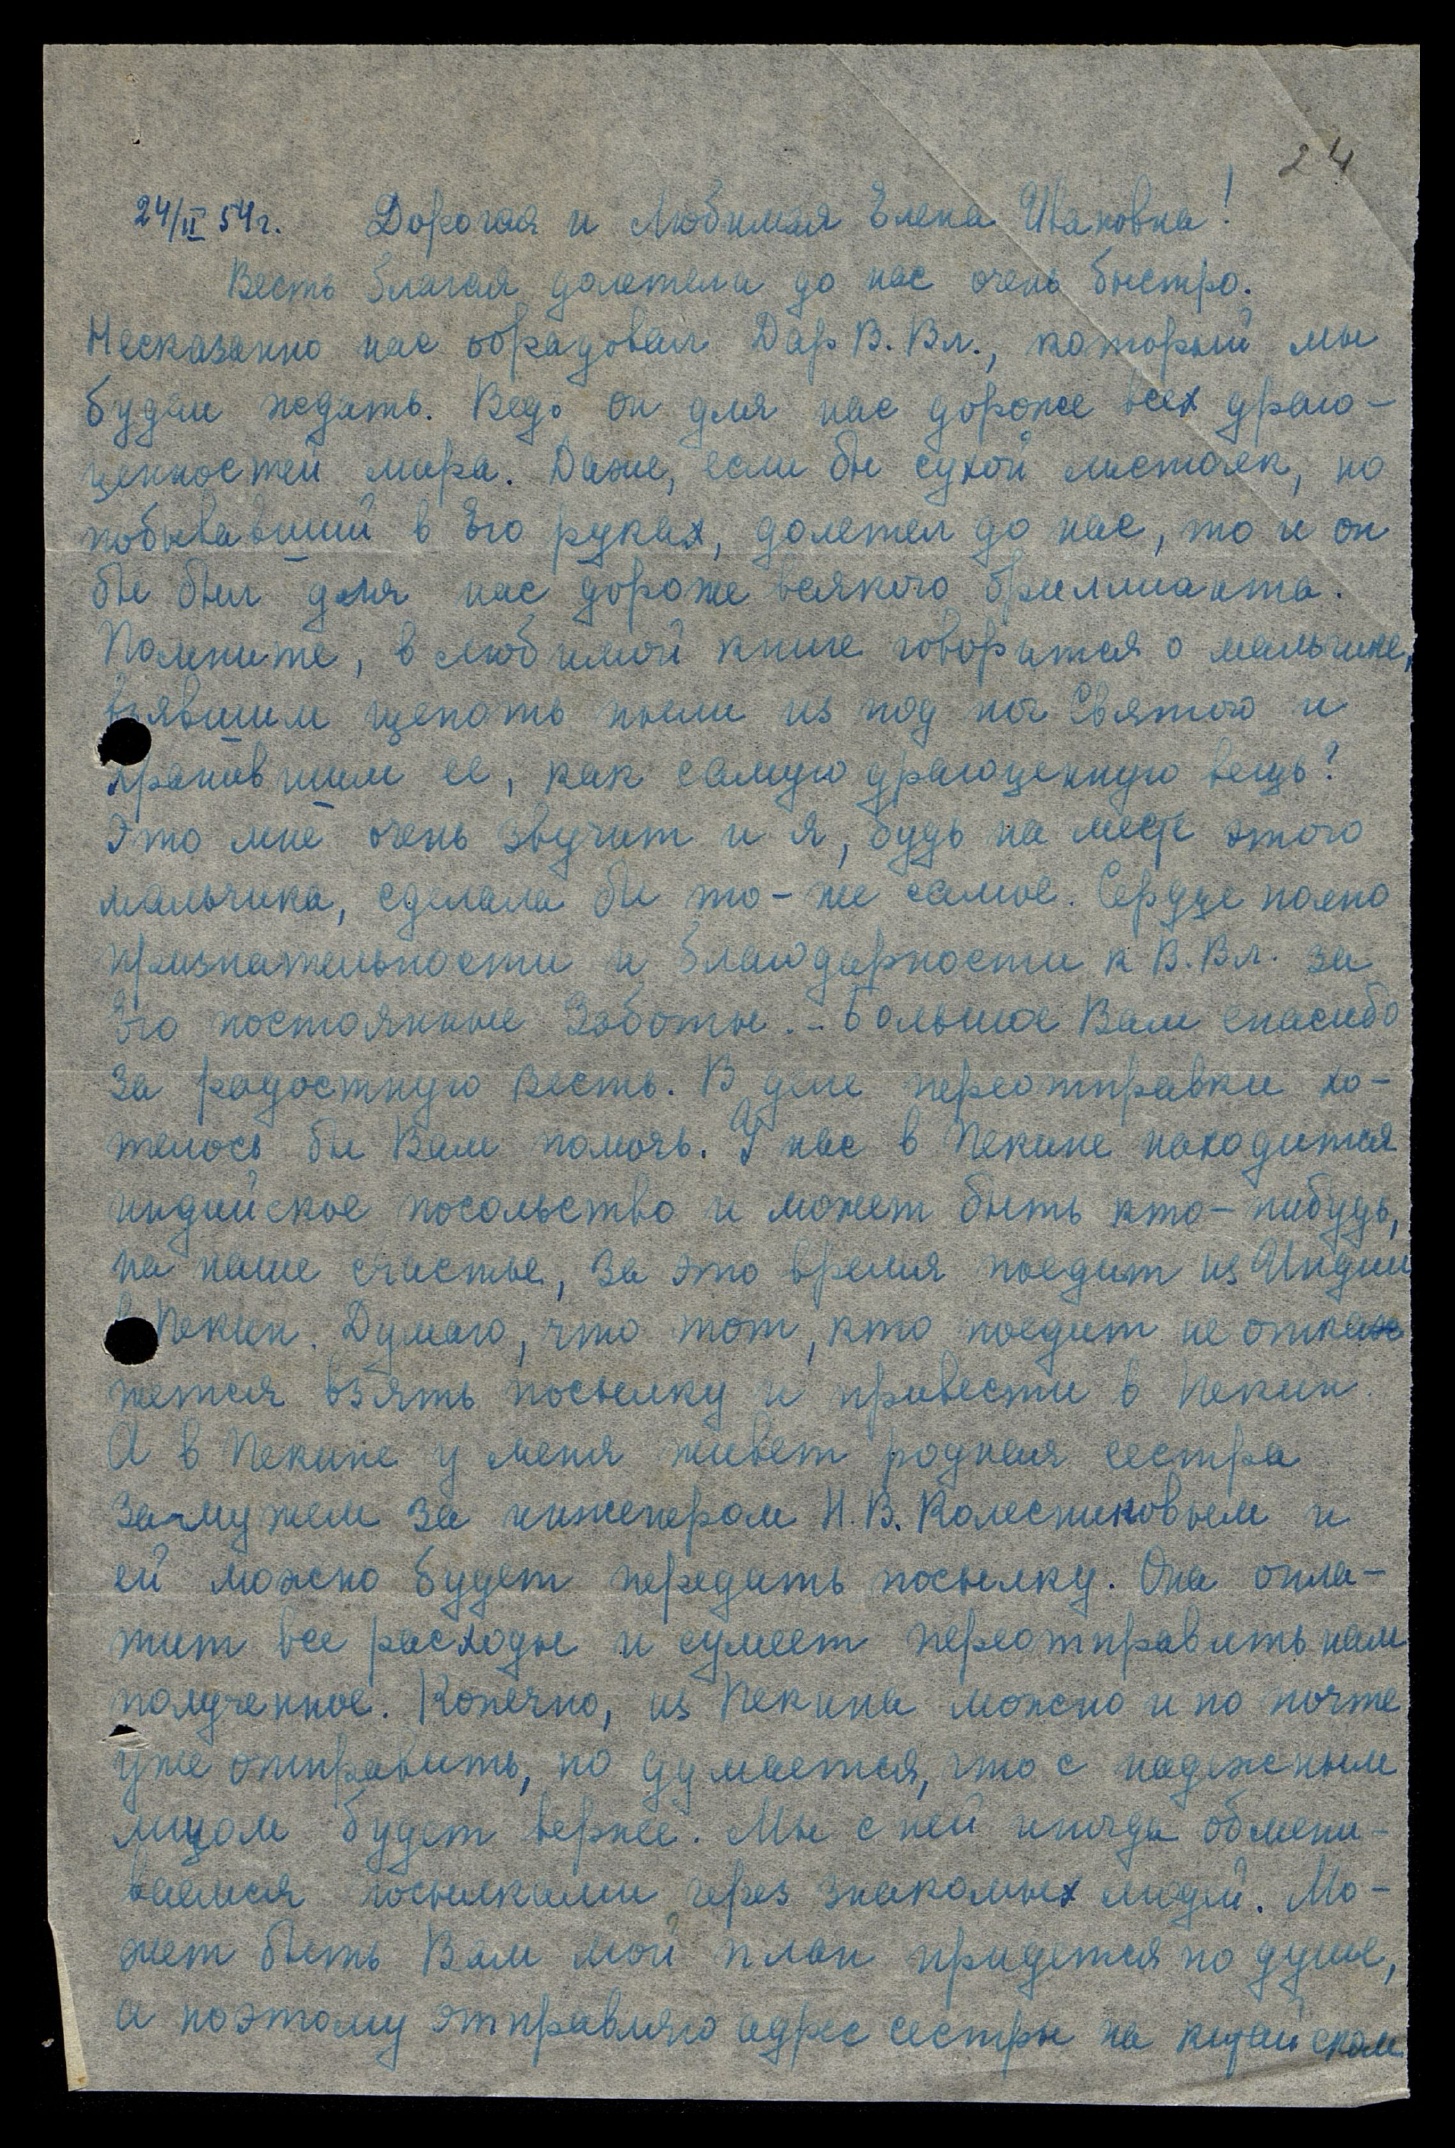 24
24/II 54г. Дорогая и Любимая Елена Ивановна!
Весть благая долетела до нас очень быстро.
Несказанно нас обрадовал Дар В. Вл., который мы
будем ждать. Ведь он для нас дороже всех драго-
ценностей мира. Даже, если бы сухой листочек, но
побывавший в Его руках, долетел до нас, то и он
бы был для нас дороже всякого бриллианта.
Помните, в любимой книге говорится о мальчике,
взявшим щепоть пыли из под ног Святого и
хранившим ее, как самую драгоценную вещь?
Это мне очень звучит и я, будь на месте этого
мальчика, сделала бы то-же самое. Сердце полно
признательности и благодарности к В. Вл. за
Его постоянные Заботы. - Большое Вам спасибо
за радостную весть. В деле переотправки хо-
телось бы Вам помочь. У нас в Пекине находится
индийское посольство и может быть кто-нибудь,
на наше счастье, за это время поедит из Индии
в Пекин. Думаю, что тот, кто поедит не отка
жется взять посылку и привести в Пекин.
А в Пекине у меня живет родная сестра
замужем за инженером Н. В. Колесниковым и
ей можно будет передать посылку. Она опла-
тит все расходы и сумеет переотправить нам
полученное. Конечно, из Пекина можно и по почте
уже отправить, но думается, что с надежным
лицом будет вернее. Мы с ней иногда обмени-
ваемся посылками через знакомых людей. Мо-
жет быть Вам мой план придется по душе,
а поэтому отправляю адрес сестры на китайском